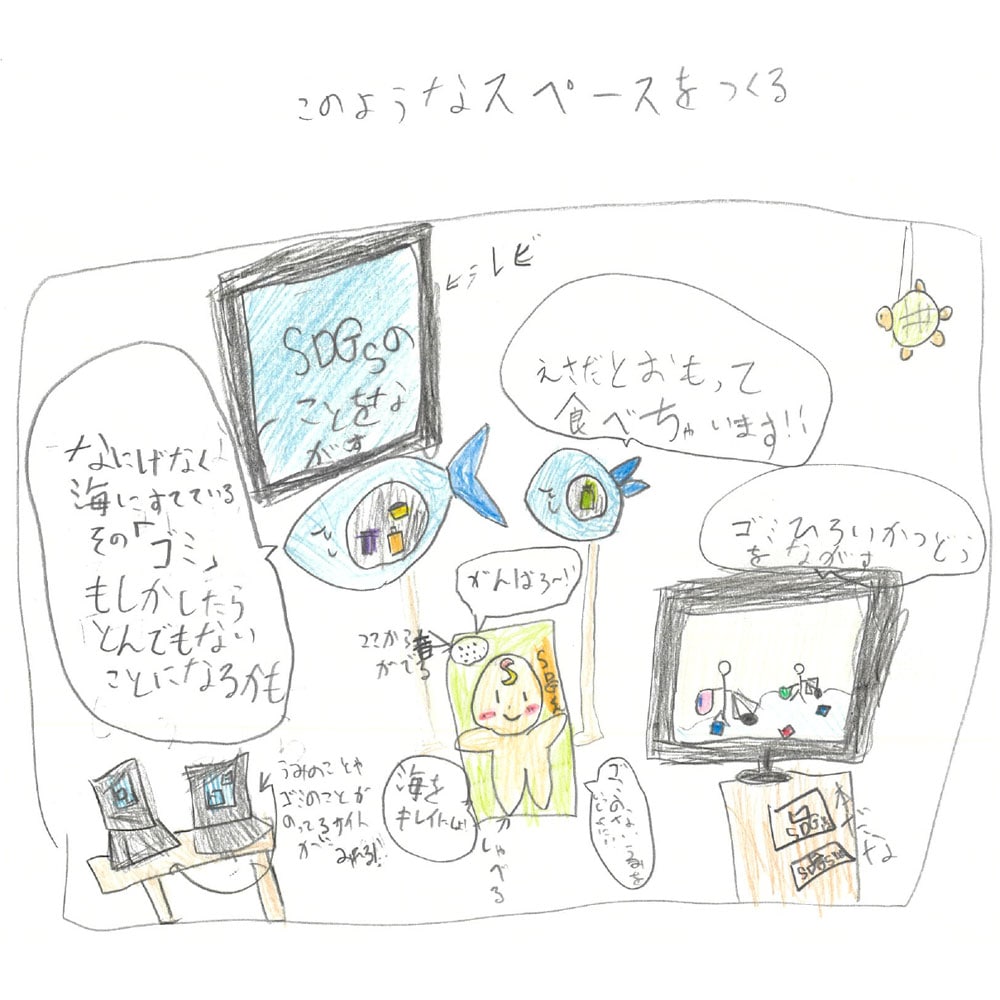 このようなスペースをつくる
ヒラレビ
SDGsの
ことをな
がす
えさだとおもって
食べちゃいます!!
なにげなく
海にすてている
その「ゴミ」
もしかしたら
とんでもない
ことになるかも
ゴミひろいかつどう
をながす
がんばろ〜!
ココから
がでる
SDGs
うみのことや
ゴミのことが
のってるサイト
が みれる!!
海を
キレイにしよ!
ゴミのないうみを
がしゃべる
SDGs
SDGs